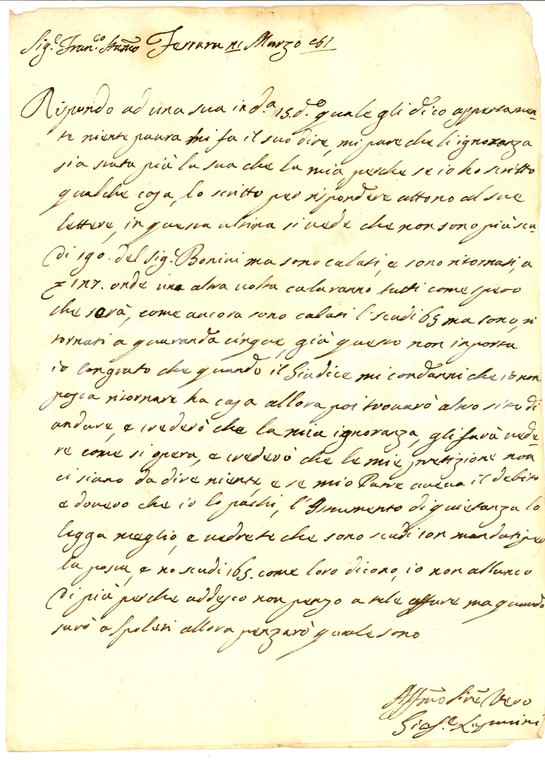 Ferrara 21 Marzo
Rispondo ad una sua in d.a 15. d.o quale gli dico appertamen-
te niente paura mi fa il suo dire, mi pare che l'ignoranza
sia stata più la sua che la mia, perche se io ho scritto
qualche cosa, lo scritto per rispondere al sue
lettere, in questa ultima si vede che non sono più scu-
di 190. del Sig.r Bonini ma sono calati, e sono ritornati, a
onde una altra volta calaranno tutti come spero
che sarà, come ancora sono calati l'scudi 65 ma sono, ri
tornati a quaranda cinque, già questo non inporta
io che quando il Giudice mi condanni che io non
possa ritornare ha casa allora poi trovarò altro sito di
andare, e crederò che la mia ignoranza, gli farà vede-
re come si opera, e crederò che le mie non
ci siano da dire niente, e se mio Patre aveva il debito
e dovevo che io lo pachi, l'Instrumento di quietanza lo
legga meglio, e vedrete che sono scudi mandati per
la posta, e no scudi 165. come loro dicono, io non allunco
di più perche addesso non penzo a tale affare ma quando
sarò a Spoleti allora penzarò quale sono
Aff.mo Ser.re Vero